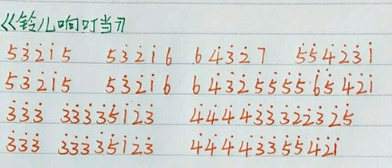 《铃儿响叮当》
53̇2̇1̇5 53̇2̇1̇6 64̇3̇2̇7 5̇5̇4̇2̇3̇1̇
53̇2̇1̇5 53̇2̇1̇6 64̇3̇2̇5̇5̇5̇5̇6̇5̇4̇2̇1̇
3̇3̇3̇ 3̇3̇3̇3̇5̇1̇2̇3̇ 4̇4̇4̇4̇3̇3̇3̇2̇2̇3̇2̇5̇
3̇3̇3̇ 3̇3̇3̇3̇5̇1̇2̇3̇ 4̇4̇4̇4̇3̇3̇5̇5̇4̇2̇1̇